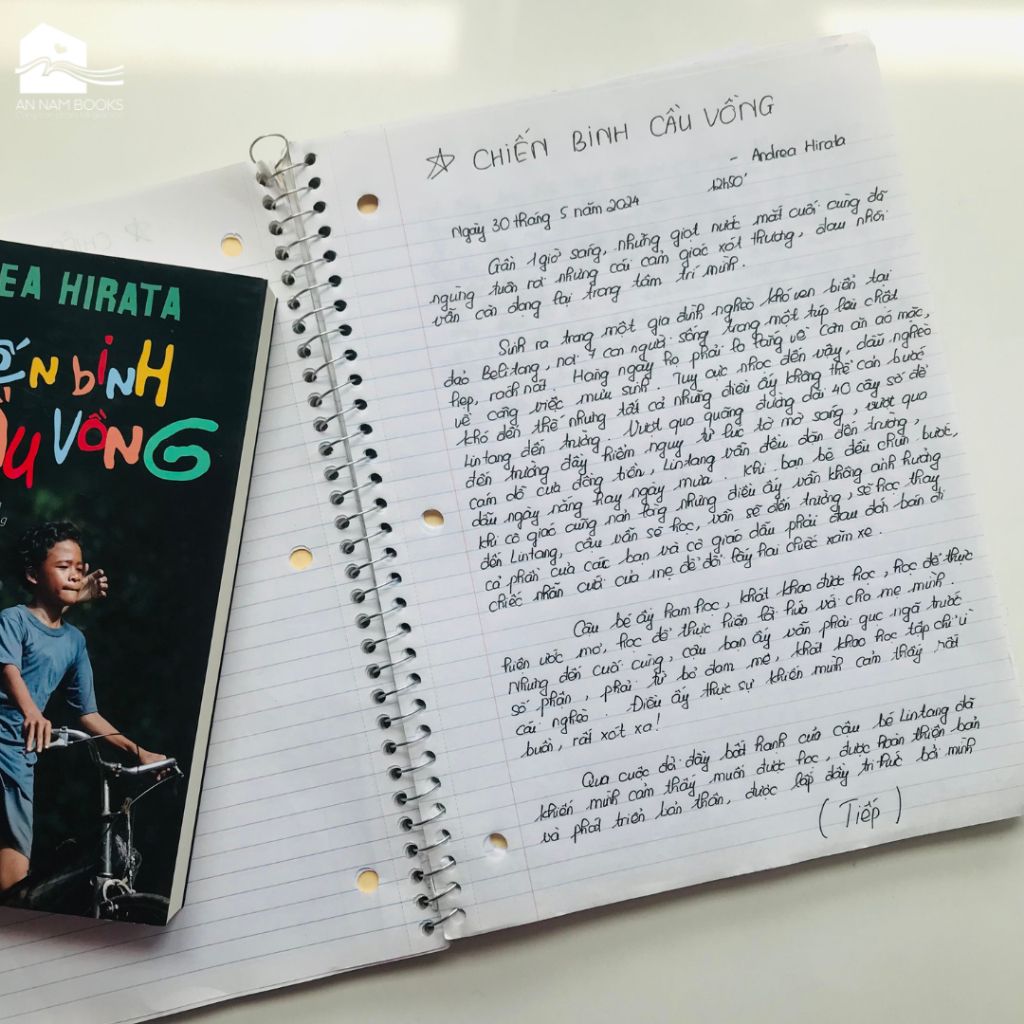 AN NAM BOOKS
EA HIRATA
ẾN BINH
ẦU VỒNG
☆ CHIẾN BINH CẦU VỒNG
- Andrea Hirata
12h50'
Ngày 30 tháng 5 năm 2024
Gần 1 giờ sáng, những giọt nước mắt cuối cùng đã
ngừng tuôn rơi nhưng cái cảm giác xót thương, đau nhói
vẫn còn đọng lại trong tâm trí mình.
Sinh ra trong một gia đình nghèo khó ven biển tại
đảo Belitang, nơi 7 con người sống trong một túp lều chật
hẹp, rách nát. Hàng ngày họ phải lo lắng về cơm ăn áo mặc,
về công việc mưu sinh. Tuy cực nhọc đến vậy, dẫu nghèo
khó đến thế nhưng tất cả những điều ấy không thể cản bước
Lintang đến trường. Vượt qua quãng đường dài 40 cây số để
đến trường đầy hiểm nguy từ lúc tờ mờ sáng, vượt qua
cám dỗ của đồng tiền, Lintang vẫn đều đặn đến trường,
dẫu ngày nắng hay ngày mưa. Khi bạn bè đều chùn bước,
khi cô giáo cũng nản lòng nhưng điều ấy vẫn không ảnh hưởng
đến Lintang, cậu vẫn sẽ học, vẫn sẽ đến trường, sẽ học thay
cả phần của các bạn và cô giáo dẫu phải đau đớn bán đi
chiếc nhẫn cưới của mẹ để đổi lấy hai chiếc xăm xe.
Cậu bé ấy ham học, khát khao được học, học để thực
hiện ước mơ, học để thực hiện lời hứa với cha mẹ mình.
Nhưng đến cuối cùng, cậu bạn ấy vẫn phải gục ngã trước
số phận, phải từ bỏ đam mê, khát khao học tập chỉ vì
cái nghèo. Điều ấy thực sự khiến mình cảm thấy rất
buồn, rất xót xa!
Qua cuộc đời đầy bất hạnh của cậu bé Lintang đã
khiến mình cảm thấy muốn được học, được hoàn thiện bản
và phát triển bản thân, được lấp đầy tri thức bởi mình
(Tiếp)